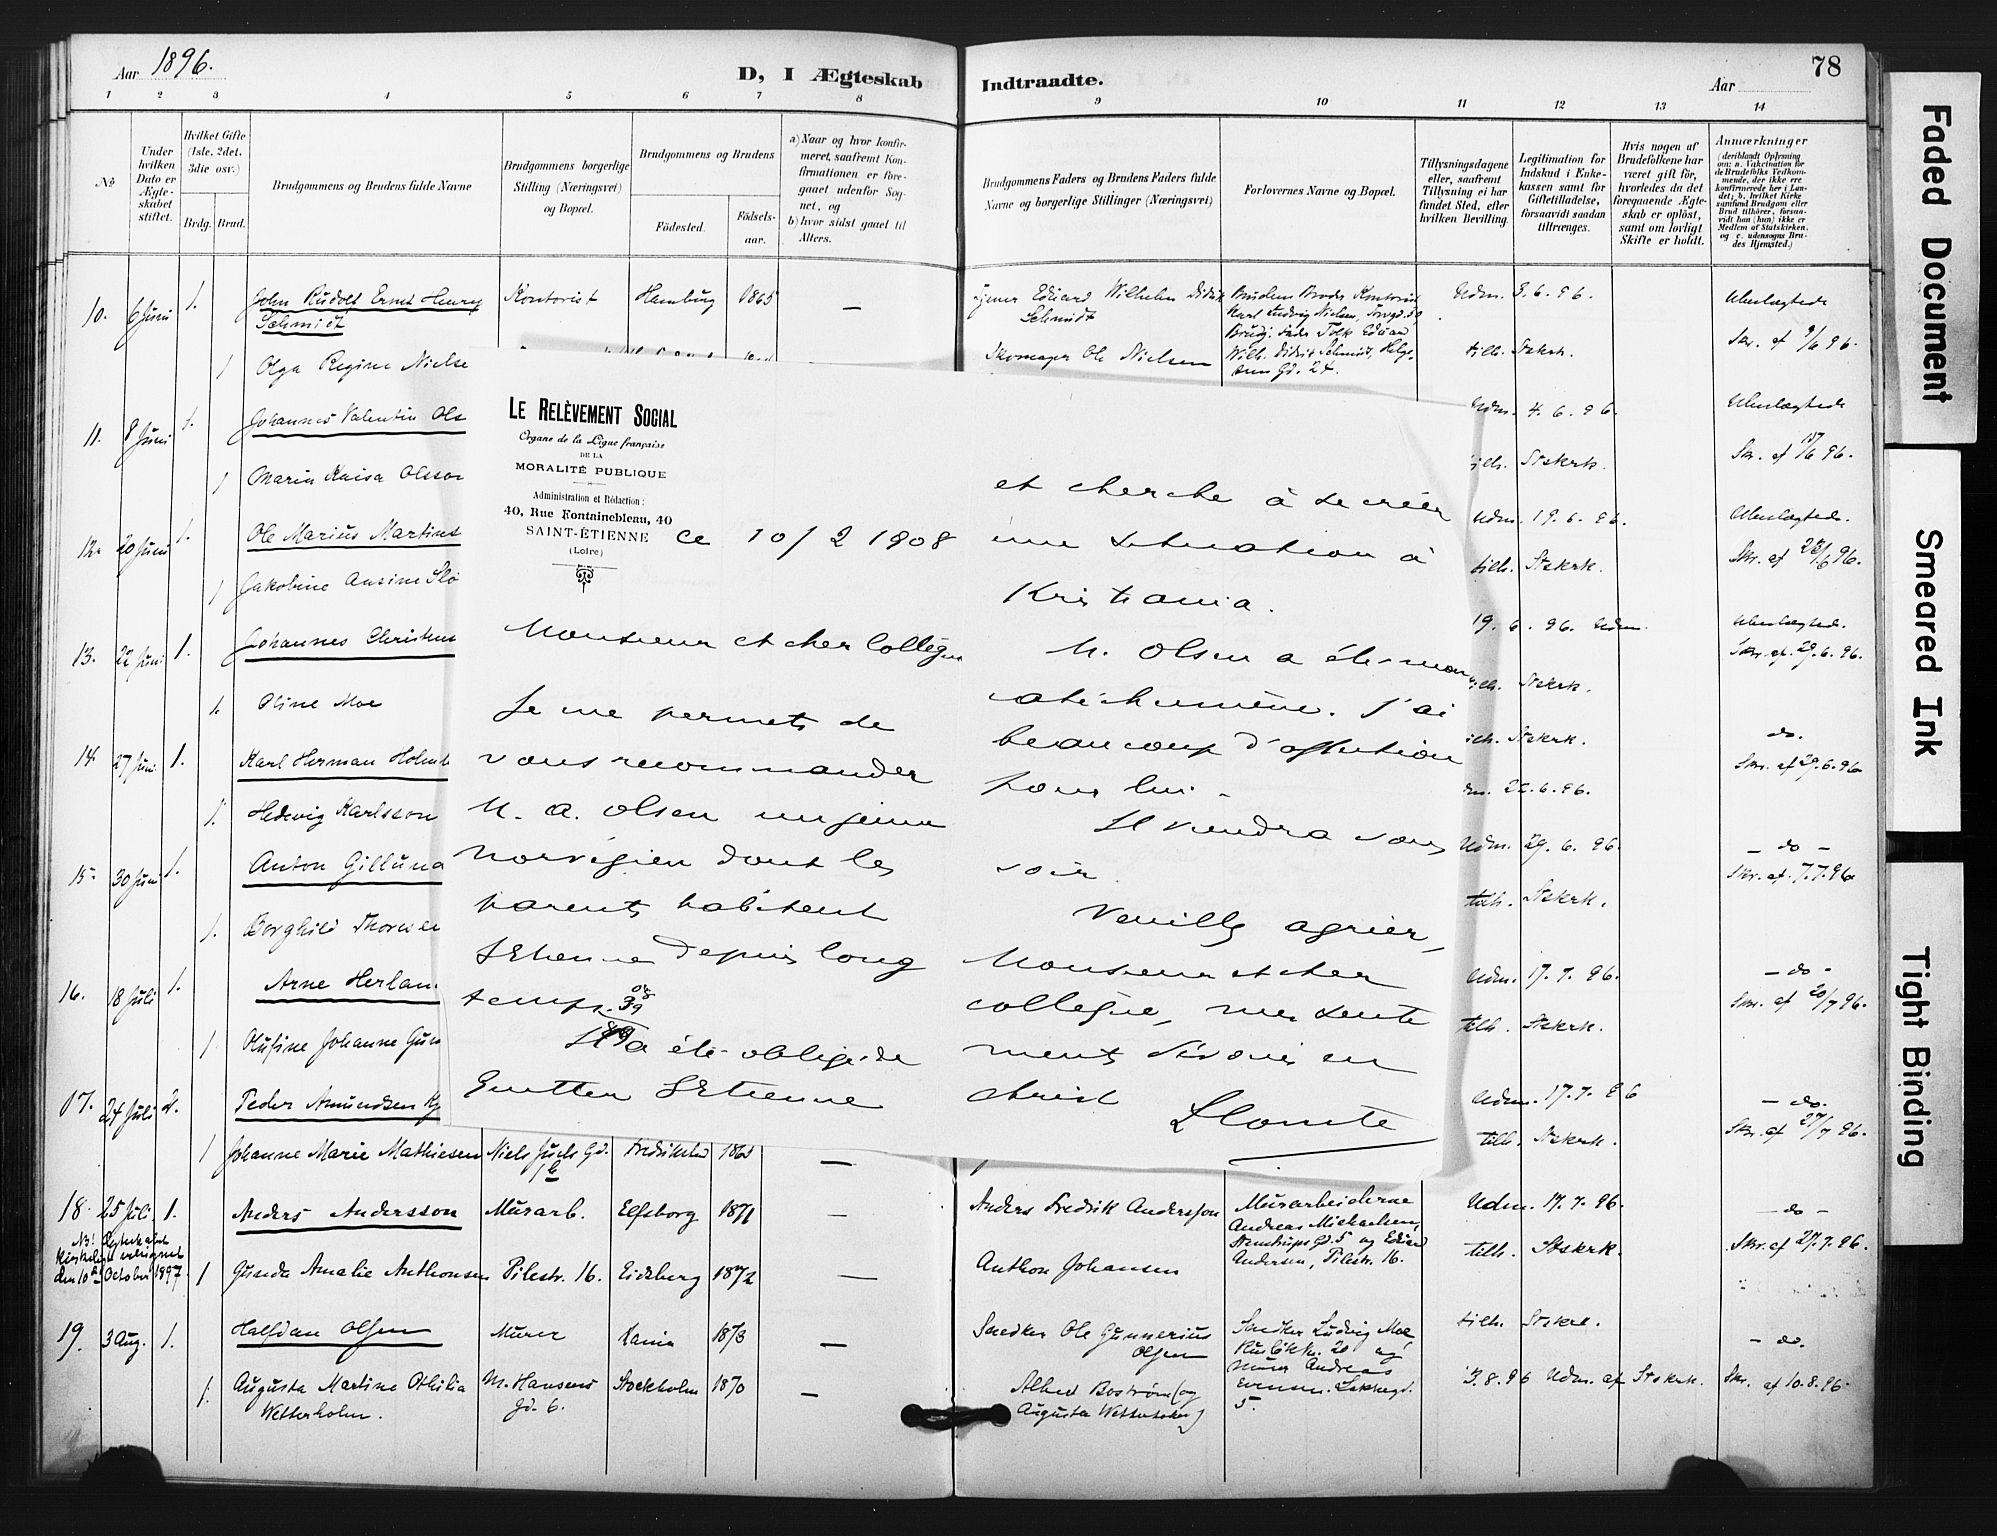 Aar 1896.
D, I Ægteskab Indtraadte.
Aar
78
1 2 3 4 5 6 7 8 9 10 11 12 13 14
No
Under hvilken Dato er Ægteskabet stiftet.
Hvilket Gifte (1ste, 2det, 3die osv.)
Brdg. Brud.
Brudgommens og Brudens fulde Navne
Brudgommens borgerlige Stilling (Næringsvei) og Bopæl.
Brudgommens og Brudens
Födested.
Födsels-aar.
a) Naar og hvor konfirmeret, saafremt Konfirmationen er foregaaet udenfor Sognet, og
b) hvor sidst gaaet til Alters.
Brudgommens Faders og Brudens Faders fulde Navne og borgerlige Stillinger (Næringsvei)
Forlovernes Navne og Bopæl.
Tillysningsdagene eller, saafremt Tillysning ei har fundet Sted, efter hvilken Bevilling.
Legitimation for Indskud i Enkekassen samt for Giftetilladelse, forsaavidt saadan tiltrænges.
Hvis nogen af Brudefolkene har været gift för, hvorledes da det foregaaende Ægteskab er oplöst, samt om lovligt Skifte er holdt.
Anmærkninger
(deriblandt Oplysning om: a. Vakcination for de Brudefolks Vedkommende, der ikke ere konfirmerede her i Landet; b. hvilket Kirkesamfund Brudgom eller Brud tilhörer, forsaavidt han (hun) ikke er Medlem af Statskirken, og c. udensogns Brudes Hjemsted.)
10. 6 Juni 1. John Rudolf Ernst Henry Schmidt Kontorist Hamburg 1865 — Eduard Wilhelm Didrik Schmidt
Brudens Broder Kontorist Karl Ludvig Nielsen, Brudg. Fader Tolk Eduard Wilh. Didrik Schmidt, Gd. 24.
Udm. 3.6.96. Ubeslægtede
1 Olga Regine Nielse Skomager Ole Nielsen tilh. Stskrk. Skr. af 9/6 96.
11. 8 Juni 1. Johannes Valentin Ols Udm. 4.6.96. Ubeslægtede
1 Maria Kaisa Olsson tilh. Stskrk. Skr. af 15/6 96.
12. 20 Juni 1. Ole Marius Martinus Udm. 19.6.96. Ubeslægtede.
1 Jakobine Ansine Slo tilh. Stskrk. Skr. af 22/6 96.
13. 22 Juni 1. Johannes Christen 19.6.96. Udm. Ubeslægtede.
1. Oline Moe tilh. Stskrk. Skr. af. 29.6.96.
14. 27 Juni 1. Karl Herman Holmb tilh. Stskrk. do.
1. Hedevig Karlsson 22.6.96. Skr. af 29.6.96
15. 30 Juni 1. Anton Gillund Udm. 29.6.96. — do —
1. Borghild Thoresen tilh. Stskrk. Skr. af. 7.7.96
16. 18 Juli 1. Arne Herlan Udm. 17.7.96. — do -
1 Olufine Johanne Gun tilh. Stskrk. Skr. af 20/7 96.
17. 24 Juli 2. Peder Amundsen Udm. 17.7.96 — do.
1 Johanne Marie Mathiesen Niels Juels Gd. Fredrikstad 1865 — tilh. Stskrk. Skr. af 27/7 96.
18. 25 Juli 1. Anders Andersson Murarb. Elfsborg 1871 — Anders Fredrik Andersson
Murarbeiderne Andreas Michaelsen, Stenstrups Gd. 5 og Edvard Andersen, Pilestr. 16.
Udm. 17.7.96. — do -
NB! Ægteskabet kirkelig velsignet den 10de October 1897
1 Gunda Amalie Anthonsen Pilestr. 16. Eidsberg 1872 — Anthon Johansen tilh. Stskrk. Skr. af 27.7.96.
19. 3 Aug. 1. Halfdan Olsen Murer Xania 1873 — Snedker Ole Gunnerius Olsen
Snedker Ludvig Moe Rusløkk. 20 og Murer Andreas Evensen. 5.
tilh. Stskrk. — do.
1. Augusta Martine Othilia Wetterholm. M. Hansens Gd. 6. Stockholm 1870 — Alfred Boström (og Augusta
3.8.96 Udm. af Stskrk. Skr. af 10.8.96.
LE RELÈVEMENT SOCIAL
Organe de la Ligue française
DE LA
MORALITÉ PUBLIQUE
Administration et Rédaction:
40, Rue Fontainebleau, 40
SAINT-ÉTIENNE
(Loire)
ce 10/2 1908
Monsieur et cher Collègue
Je me permets de
vous recommander
M. A. Olsen un jeune
norvégien dont les
parents habitent
St Etienne depuis long
temps.
Il a été obligé de
quitter St Etienne
et cherche à se créer
une situation à
Kristiania.
M. Olsen a été mon
catéchumène. J'ai
beaucoup d'affection
pour lui.
Il viendra vous
voir.
Veuillez agréer,
Monsieur et cher
collègue, mes senti
ments dévoués en
Christ
LComte
Faded Document
Smeared Ink
Tight Binding